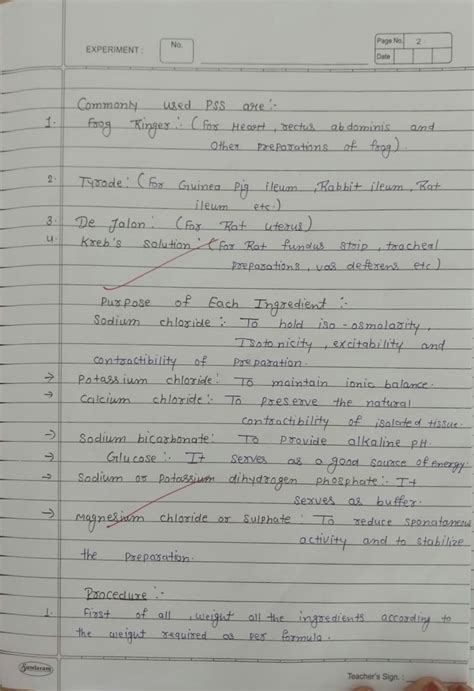 EXPERIMENT :
No.
Page No. 2
Date
Commonly used PSS are :-
1. Frog Ringer :- (For Heart, rectus abdominis and
Other preparations of frog).
2. Tyrode : (For Guinea Pig ileum, Rabbit ileum, Rat
ileum etc.)
3. De Jalon : (For Rat uterus)
4. Kreb's Solution : (For Rat fundus strip, tracheal
preparations, vas deferens etc)
Purpose of Each Ingredient :-
Sodium chloride :- To hold iso-osmolarity,
Isotonicity, excitability and
contractibility of Preparation.
→ Potassium chloride : To maintain ionic balance.
→ Calcium chloride :- To preserve the natural
contractibility of isolated tissue.
→ Sodium bicarbonate : To provide alkaline pH.
→ Glucose :- It serves as a good source of energy.
→ Sodium or Potassium dihydrogen phosphate :- It
serves as buffer.
→ Magnesium chloride or Sulphate : To reduce spontaneou
activity and to stabilize
the Preparation.
Procedure :-
1. First of all, weight all the ingredients according to
the weight required as per formula.
Sundaram
Teacher's Sign. :